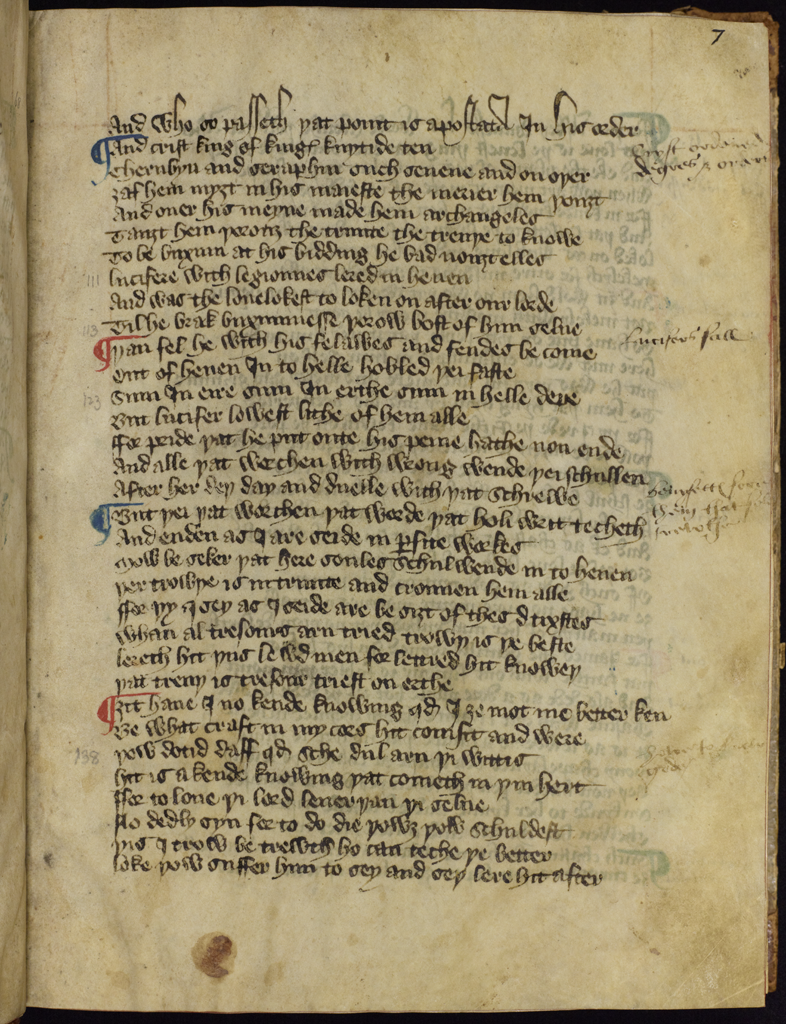 7
And who so passeth þat point is apostata In his order
And crist king of kinges knytide ten
Cherubyn and seraphin such seuene and on oþer
ȝaf hem myȝt in his maieste the merier hem þouȝt
And ouer his meyne made hem archangeles
Tauȝt hem þorouȝ the trinite the treuþe to knowe
To be buxum at his bidding he bad nouȝt elles
lucifere with legiounes lered in heuen
And was the louelokest to loken on after our lorde
Til he brak buxumnesse þorow bost of him selue
þan fel he with his felawes and fendes be come
Out of heuen In to helle hobled þei faste
Sum In eire sum In erthe sum in helle depe
But lucifer lowest lithe of hem alle
ffor pride þat he put oute his peine hathe non ende
And alle þat werchen with wrong wende þei schullen
After her dey day and duelle with þat schrewe
But þei þat worchen þat worde þat holi writ techeth
And enden as I are seide in perfite werkes
Mow be seker þat here soules schul wende in to heuen
þer trowþe is in trinite and crounen hem alle
ffor þy I sey as I seide are be siȝt of thes textes
Whan al tresouris arn tried trowþ is þe beste
lereth hit þus lewd men for lettred hit knoweþ
þat treuþ is tresour triest on erthe
ȝit haue I no kende knowing qd I ȝe mot me better ken
Be what craft in my cors hit comsit and were
þow dotid daff qd sche dul arn þi wittis
hit is a kende knowing þat cometh in þin hert
ffor to loue þi lord leuer þan þi selue
No dedly syn for to do die þowȝ þow schuldest
þis I trow be trewth ho can teche þe better
loke þow suffer him to sey and sey lere hit after
Lucifers fall